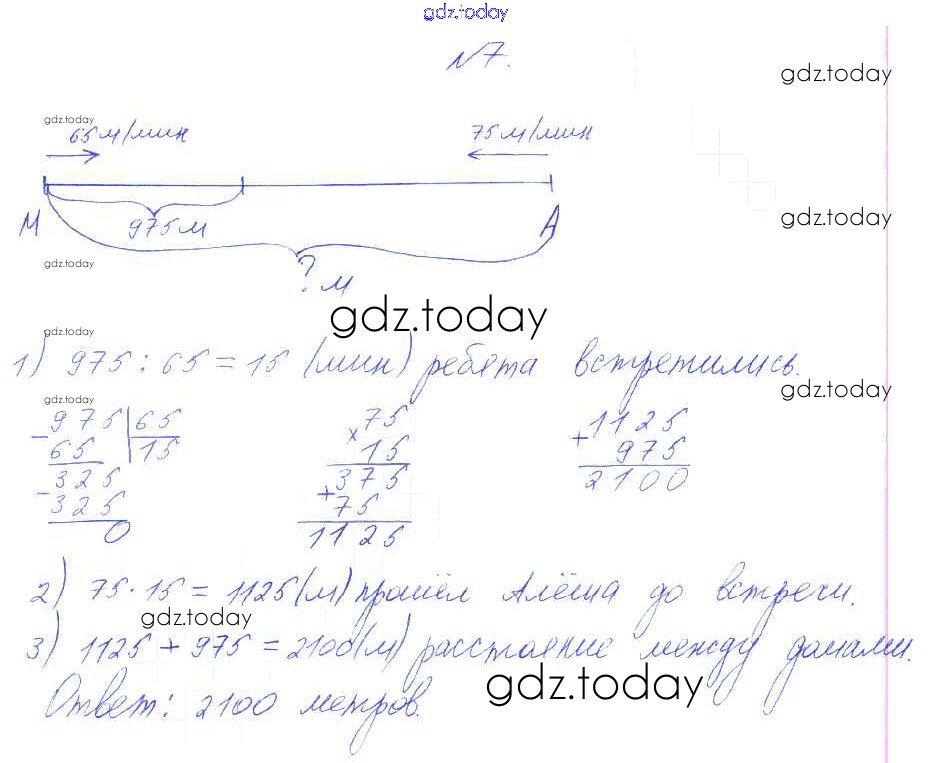 gdz.today
№7.
gdz.today
gdz.today
65 м/мин 75 м/мин
М 975 м А
gdz.today
gdz.today
? м
gdz.today
gdz.today
1) 975 : 65 = 15 (мин) ребята встретились.
gdz.today
gdz.today
- 975 | 65
65 15
- 325
325
0
75
× 15
375
+ 75
1125
1125
+ 975
2100
2) 75 · 15 = 1125 (м) прошёл Алёша до встречи.
gdz.today
3) 1125 + 975 = 2100 (м) расстояние между домами.
gdz.today
Ответ: 2100 метров.